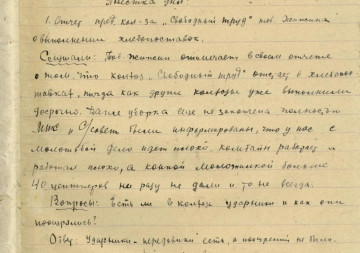 Повестка дня:
1. Отчет пред. кол-за „Свободный труд" тов. Жспкина
о выполнении хлебопоставок.
Слушали: Тов. отмечает в своем отчете
о том, что колхоз „Свободный труд" отстает в хлебопос
тавках, тогда как другие колхозы уже выполнили
досрочно. Далее уборка еще не закончена полностью
МТС и С/совет были информированы, что у нас с
молотьбой дело идет плохо. Комбайны работ
работали плохо, а конной молотилкой больше
40 центнеров ни разу не дали и то не всегда.
Вопросы: есть ли в колхозе ударники и как они
поощрялись?
Ответ: Ударники-передовики есть, а поощрений не было.